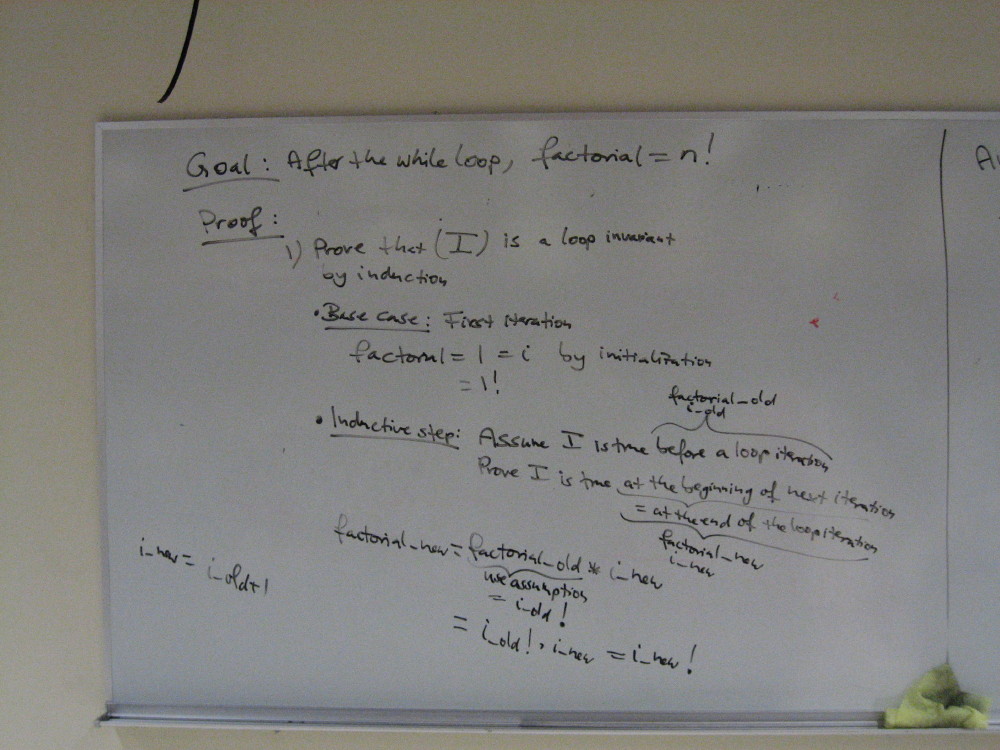 Goal: After the while loop, factorial = n!
Proof:
1) Prove that (I) is a loop invariant
by induction
• Base case: First iteration
factorial = 1 = i by initialization
= 1!
factorial_old
i_old
• Inductive step: Assume I is true before a loop iteration
Prove I is true at the beginning of next iteration
= at the end of the loop iteration
factorial_new
i_new
i_new = i_old+1
factorial_new = factorial_old * i_new
use assumption
= i_old!
= i_old! · i_new = i_new!